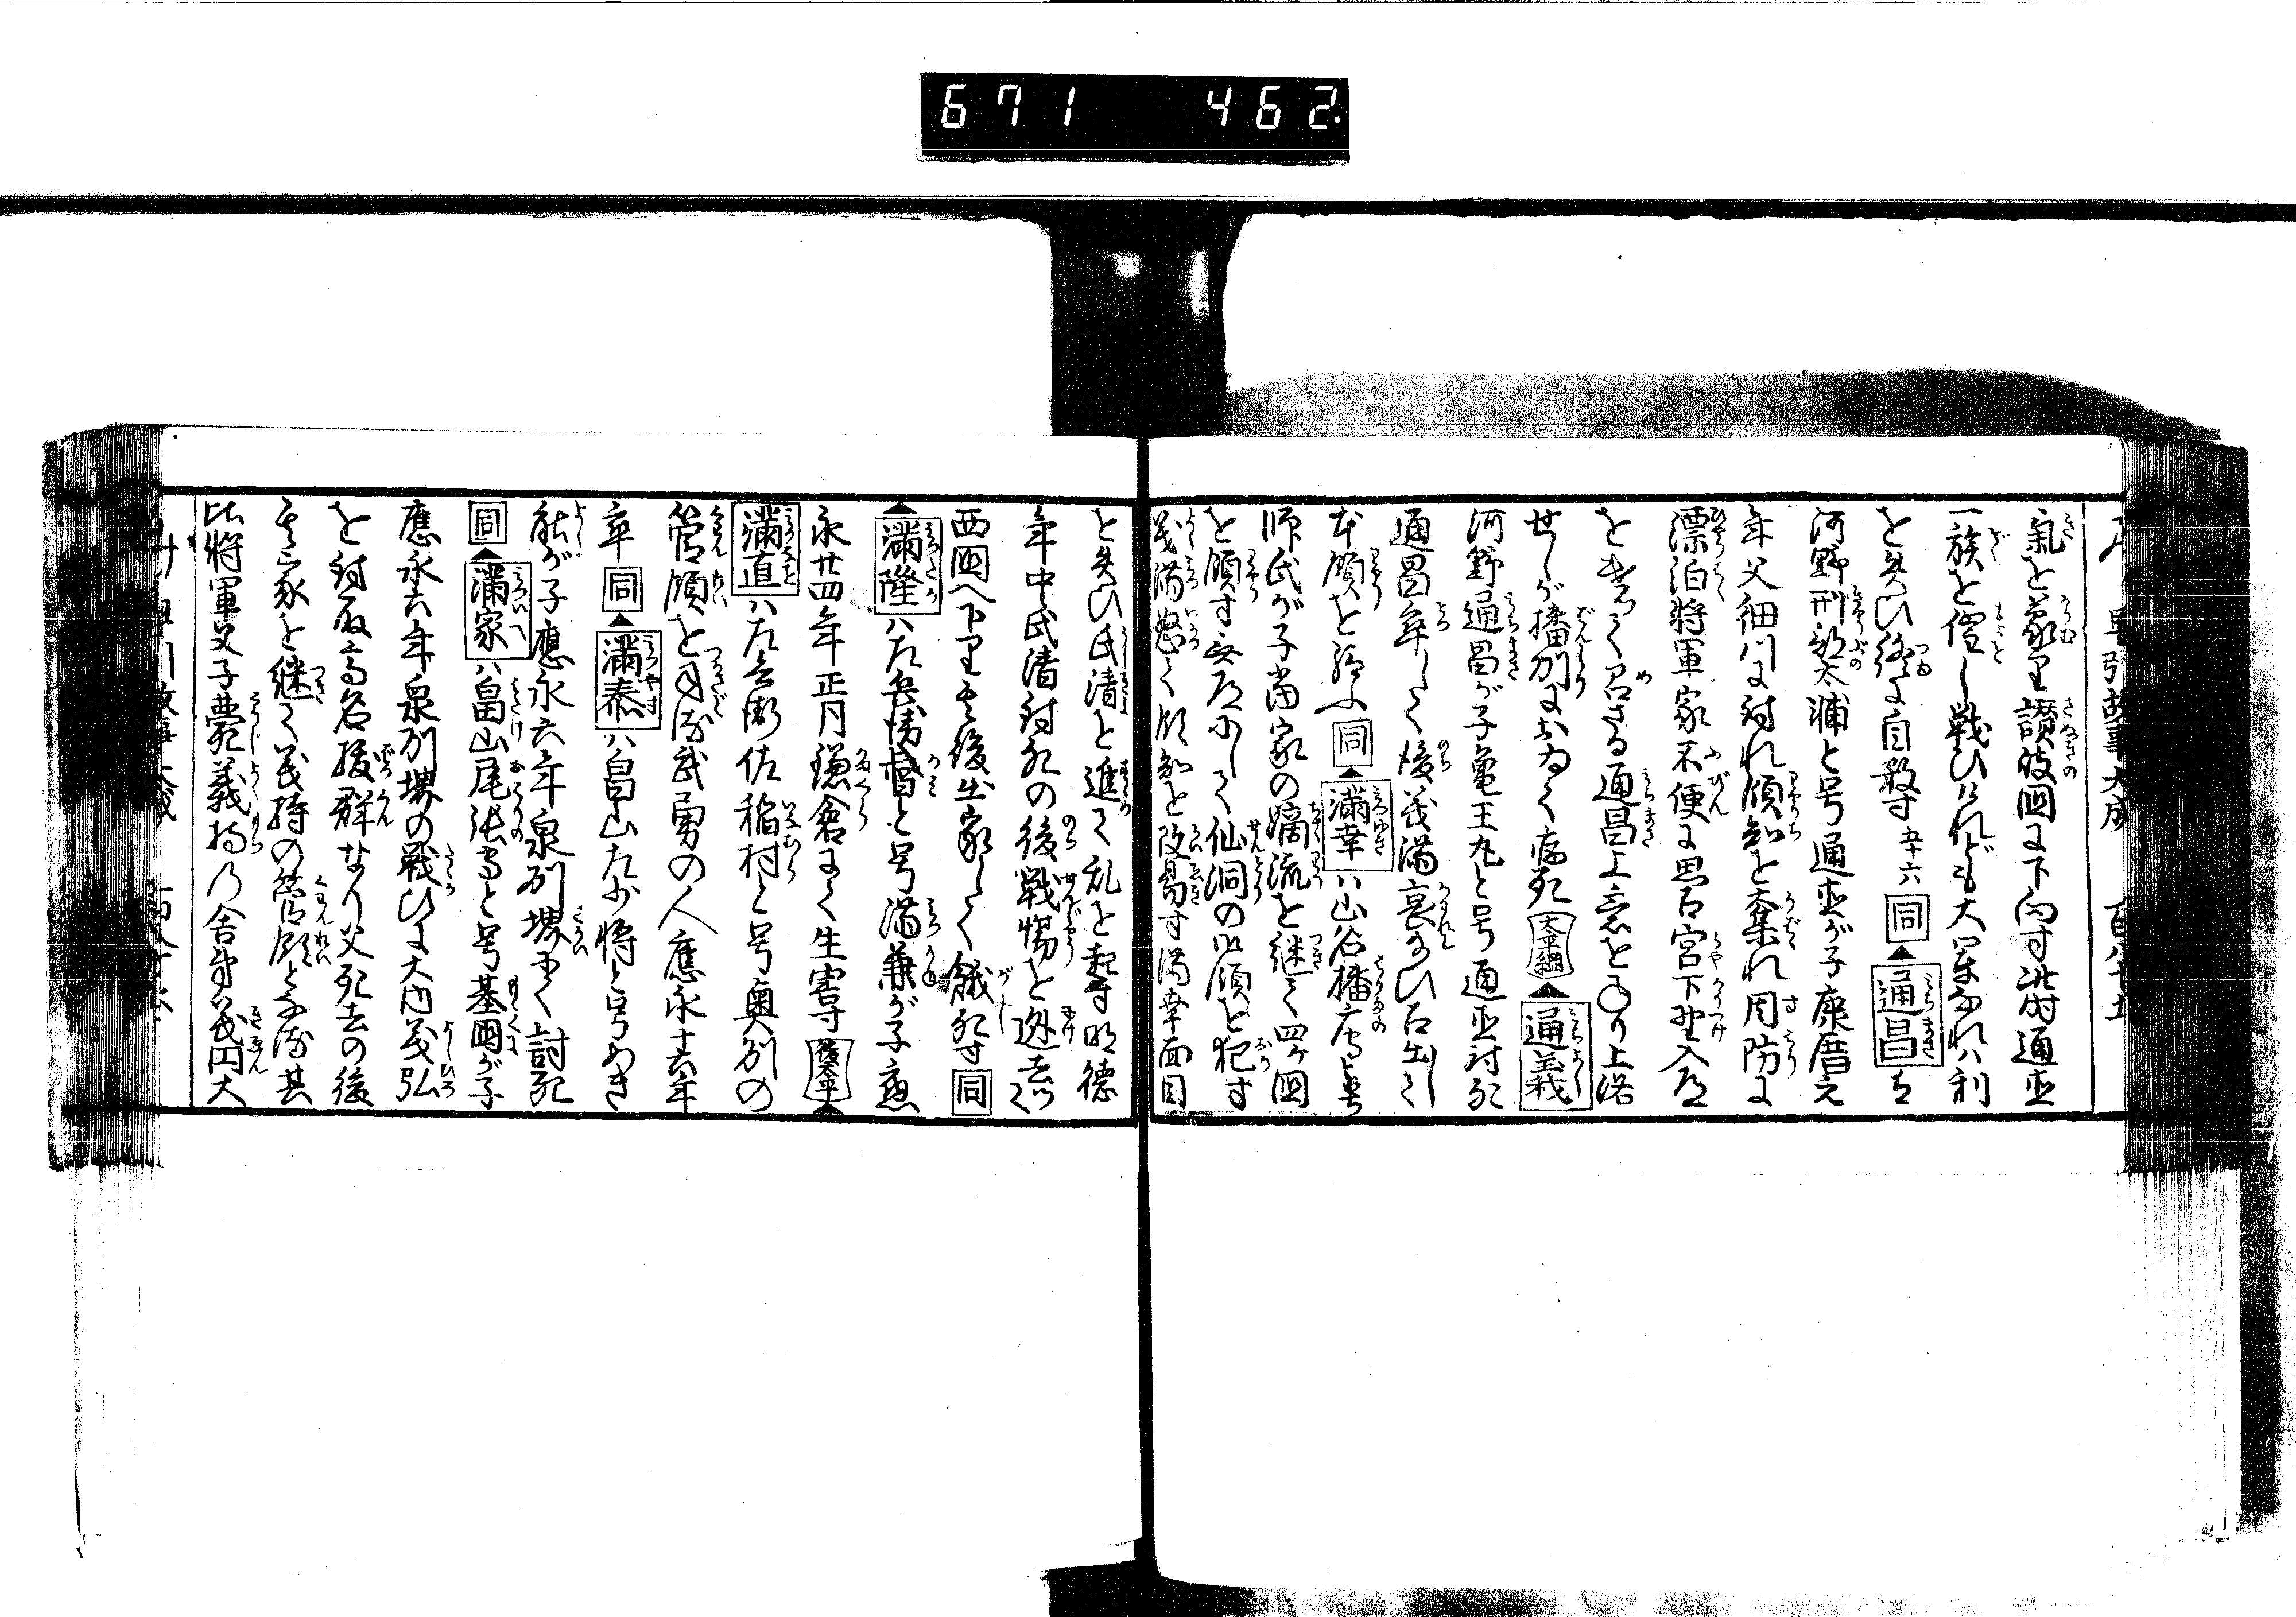 671 462.
早引故事大成 百八十
氣を蒙里讃岐國に下向す此時通直
一族を催し戦ひけれども大軍なれハ利
を失ひ終に自殺す 五十六 同▲通昌ち
河野刑部太浦と号通直が子康暦元
年父細川に討れ領知を奪れ周防に
漂泊将軍家不便に思召宮下野入道
を書て召さる通昌上意を承り上洛
せしが播刕におゐて病死 太平綱▲通義
河野通昌が子亀王丸と号通直討死
通昌卒して後義満哀給ひ召出して
本領を給ふ 同▲満幸ハ山名播磨守と号
師氏が子当家の嫡流を継て四ケ国
を領す無道にして仙洞の御領を犯す
義満怒て領知を改易す満幸面目
を失ひ氏清を進て乱を起す明徳
年中氏清討死の後戦場を迯去て
西国へ下里其後出家して餓死す 同
▲満隆ハ左兵衛督と号満兼が子應
永廿四年正月鎌倉にて生害す 後太平▲
満直ハ左兵衛佐稲村と号奥刕の
管領を司る武勇の人應永十六年
卒 同▲満泰ハ畠山左少将と号わき
能が子應永六年泉刕堺にて討死
同▲満家ハ畠山尾張守と号基国が子
應永六年泉刕堺の戦ひに大内義弘
を討取高名抜群なり父死去の後
其家を継て義持の管領となる其
比将軍父子薨義持乃舎弟義円大